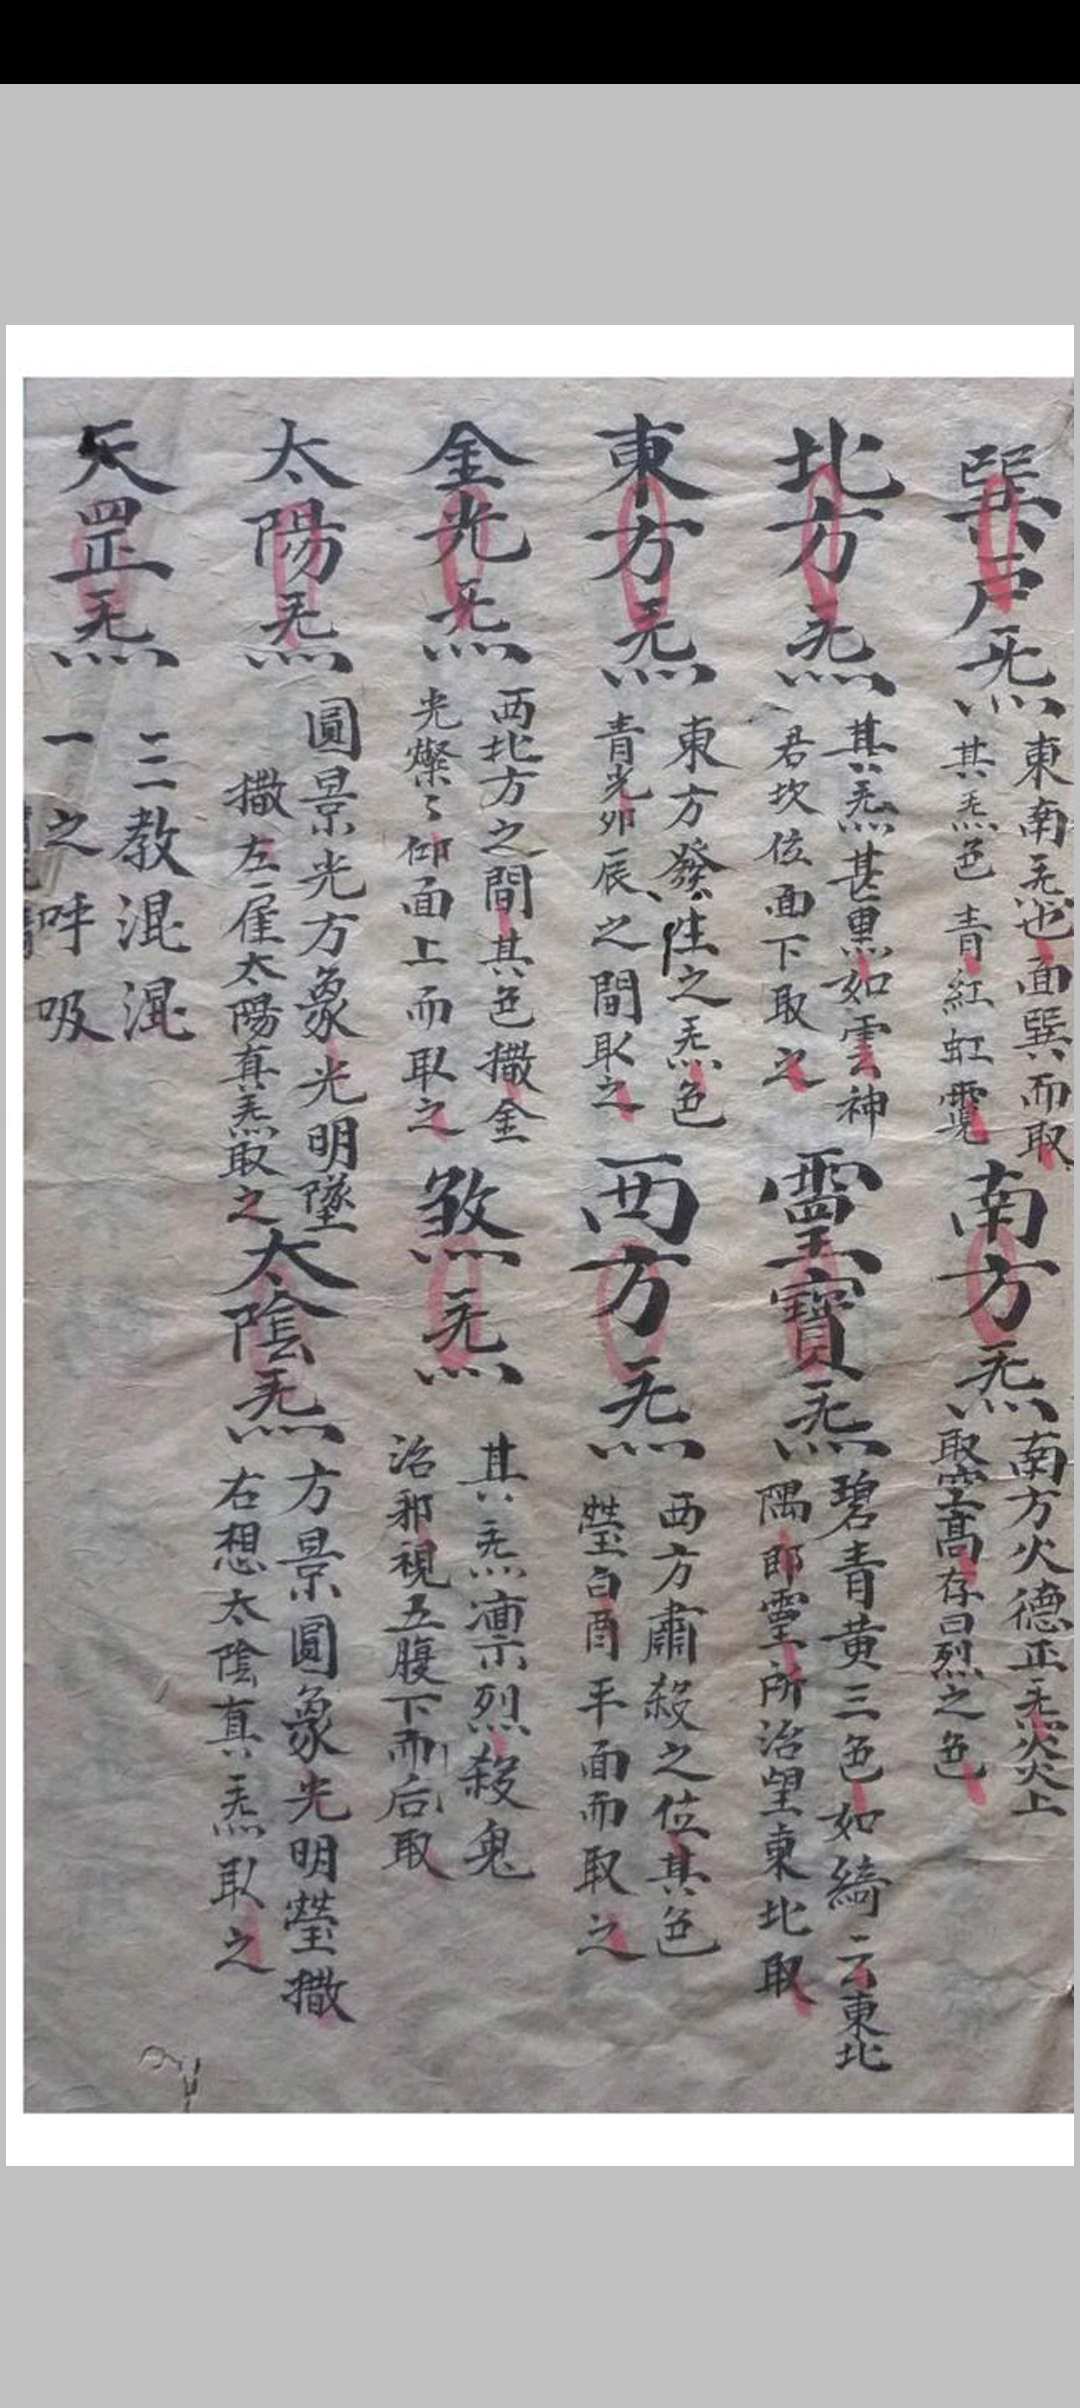 巽户炁
東南炁也面巽而取
其炁色青紅虹霓
南方炁
南方火德正炁炎炎上
取空高存曰烈之色
北方炁
其炁甚黑如雲神
君坎位面下取之
靈寶炁
碧青黄三色如綺云東北
隅郎靈所治望東北取
東方炁
東方發性之炁色
青光卯辰之間取之
西方炁
西方肅殺之位其色
瑩白酉平面而取之
金光炁
西北方之間其色撒金
光燦々仰面上而取之
煞炁
其炁凛烈殺鬼
治邪視五腹下而后取
太陽炁
圓景光方象光明墜
撒左雇太陽真炁取之
太陰炁
方景圓象光明瑩撒
右想太陰真炁取之
天罡炁
三教混混
一之呼吸